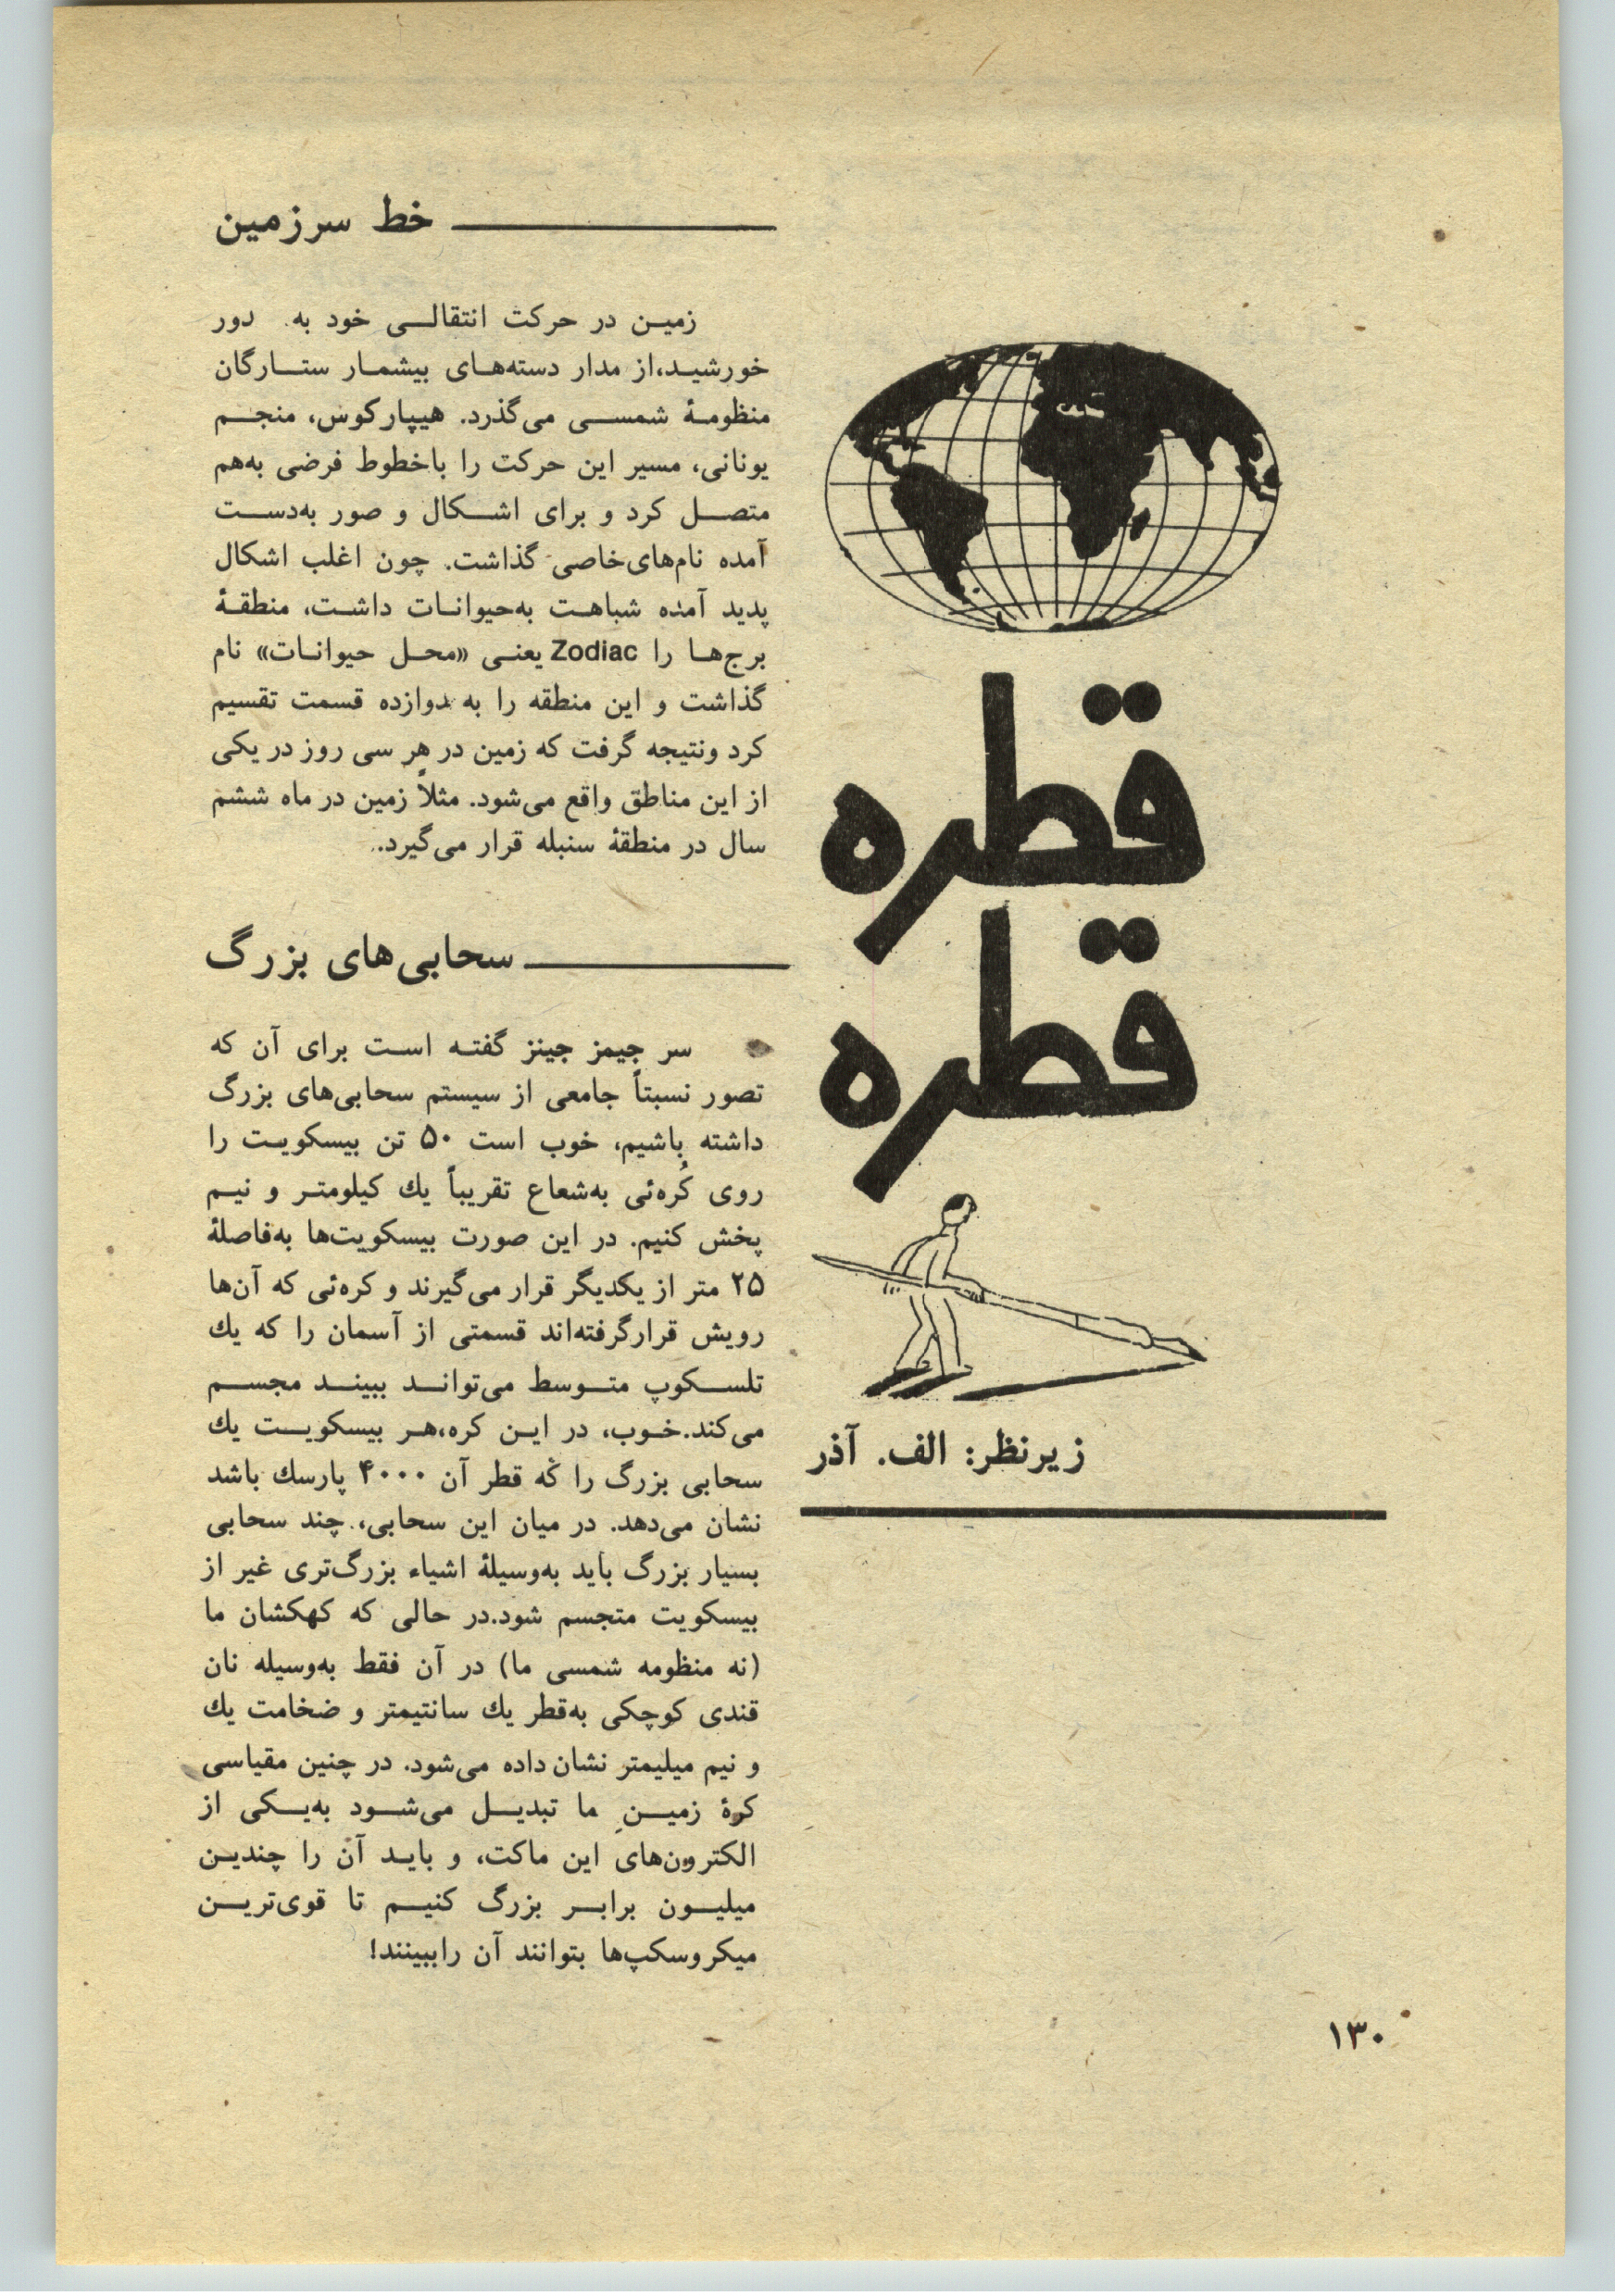 قطره
قطره
زیرنظر: الف. آذر
خط سرزمین
زمیـن در حرکت انتقالـی خود به دور
خورشیـد،از مدار دسته‌هـای بیشمـار ستـارگان
منظومـهٔ شمسـی می‌گذرد. هیپارکوس، منجـم
یونانی، مسیر این حرکت را باخطوط فرضی به‌هم
متصـل کرد و برای اشـکال و صور به‌دسـت
آمده نام‌های‌خاصی گذاشت. چون اغلب اشکال
پدید آمده شباهـت به‌حیوانـات داشـت، منطقـهٔ
برج‌هـا را Zodiac یعنـی «محـل حیوانـات» نام
گذاشت و این منطقه را به دوازده قسمت تقسیم
کرد ونتیجه گرفت که زمین در هر سی روز در یکی
از این مناطق واقع می‌شود. مثلاً زمین در ماه ششم
سال در منطقهٔ سنبله قرار می‌گیرد.
سحابی‌های بزرگ
سر جیمز جینز گفتـه اسـت برای آن که
تصور نسبتاً جامعی از سیستم سحابی‌های بزرگ
داشته باشیم، خوب است ۵۰ تن بیسکویـت را
روی کُره‌ئی به‌شعاع تقریباً یك کیلومتـر و نیـم
پخش کنیم. در این صورت بیسکویت‌ها به‌فاصلهٔ
۲۵ متر از یکدیگر قرار می‌گیرند و کره‌ئی که آن‌ها
رویش قرارگرفته‌اند قسمتی از آسمان را که یك
تلسـکوپ متـوسط می‌توانـد ببینـد مجسـم
می‌کند.خـوب، در ایـن کره،هـر بیسکویـت یك
سحابی بزرگ را که قطر آن ۴۰۰۰ پارسك باشد
نشان می‌دهد. در میان این سحابی، چند سحابی
بسیار بزرگ باید به‌وسیلهٔ اشیاء بزرگ‌تری غیر از
بیسکویت متجسم شود.در حالی که کهکشان ما
(نه منظومه شمسی ما) در آن فقط به‌وسیله نان
قندی کوچکی به‌قطر یك سانتیمتر و ضخامت یك
و نیم میلیمتر نشان داده می‌شود. در چنین مقیاسی
کرهٔ زمیـن ما تبدیـل می‌شـود به‌یـکی از
الکترون‌های این ماکت، و بایـد آن را چندیـن
میلیـون برابـر بزرگ کنیـم تا قوی‌تریـن
میکروسکپ‌ها بتوانند آن راببینند!
۱۳۰